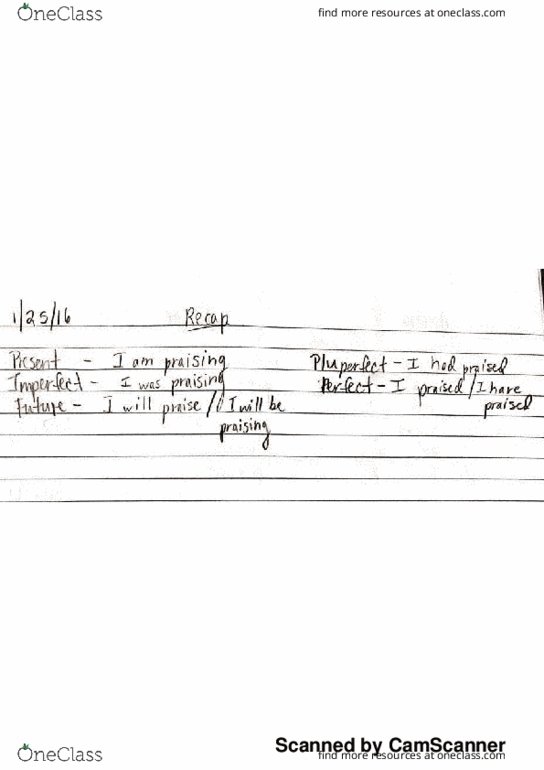 OneClass
find more resources at oneclass.com
1/25/16
Recap
Present - I am praising
Imperfect - I was praising
Future - I will praise // I will be
praising
Pluperfect - I had praised
Perfect - I praised / I have
praised
Scanned by CamScanner
OneClass
find more resources at oneclass.com